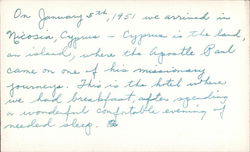 On January 5th, 1951 we arrived in
Nicosia, Cyprus - Cyprus is the land,
an island, where the Apostle Paul
came on one of his missionary
journeys. This is the hotel where
we had breakfast, after spending
a wonderful comfortable evening of
needed sleep.